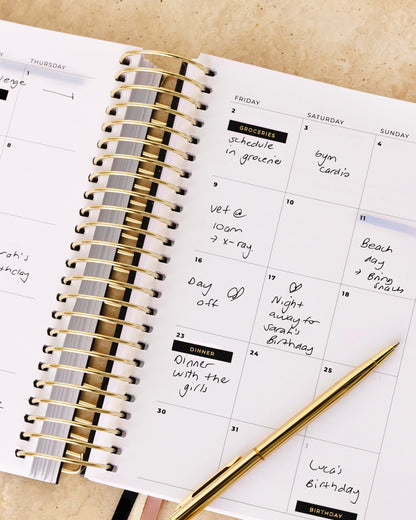 THURSDAY
1
8
FRIDAY
SATURDAY
SUNDAY
2
GROCERIES
schedule
in groceries
3
gym
cardio
4
9
Vet @
10am
→ x-ray
10
11
Beach
day
→ Bring
snacks
16
Day
off
17
Night
away for
Sarah's
Birthday
18
23
DINNER
Dinner
with the
girls
24
25
30
31
1
Luca's
Birthday
BIRTHDAY